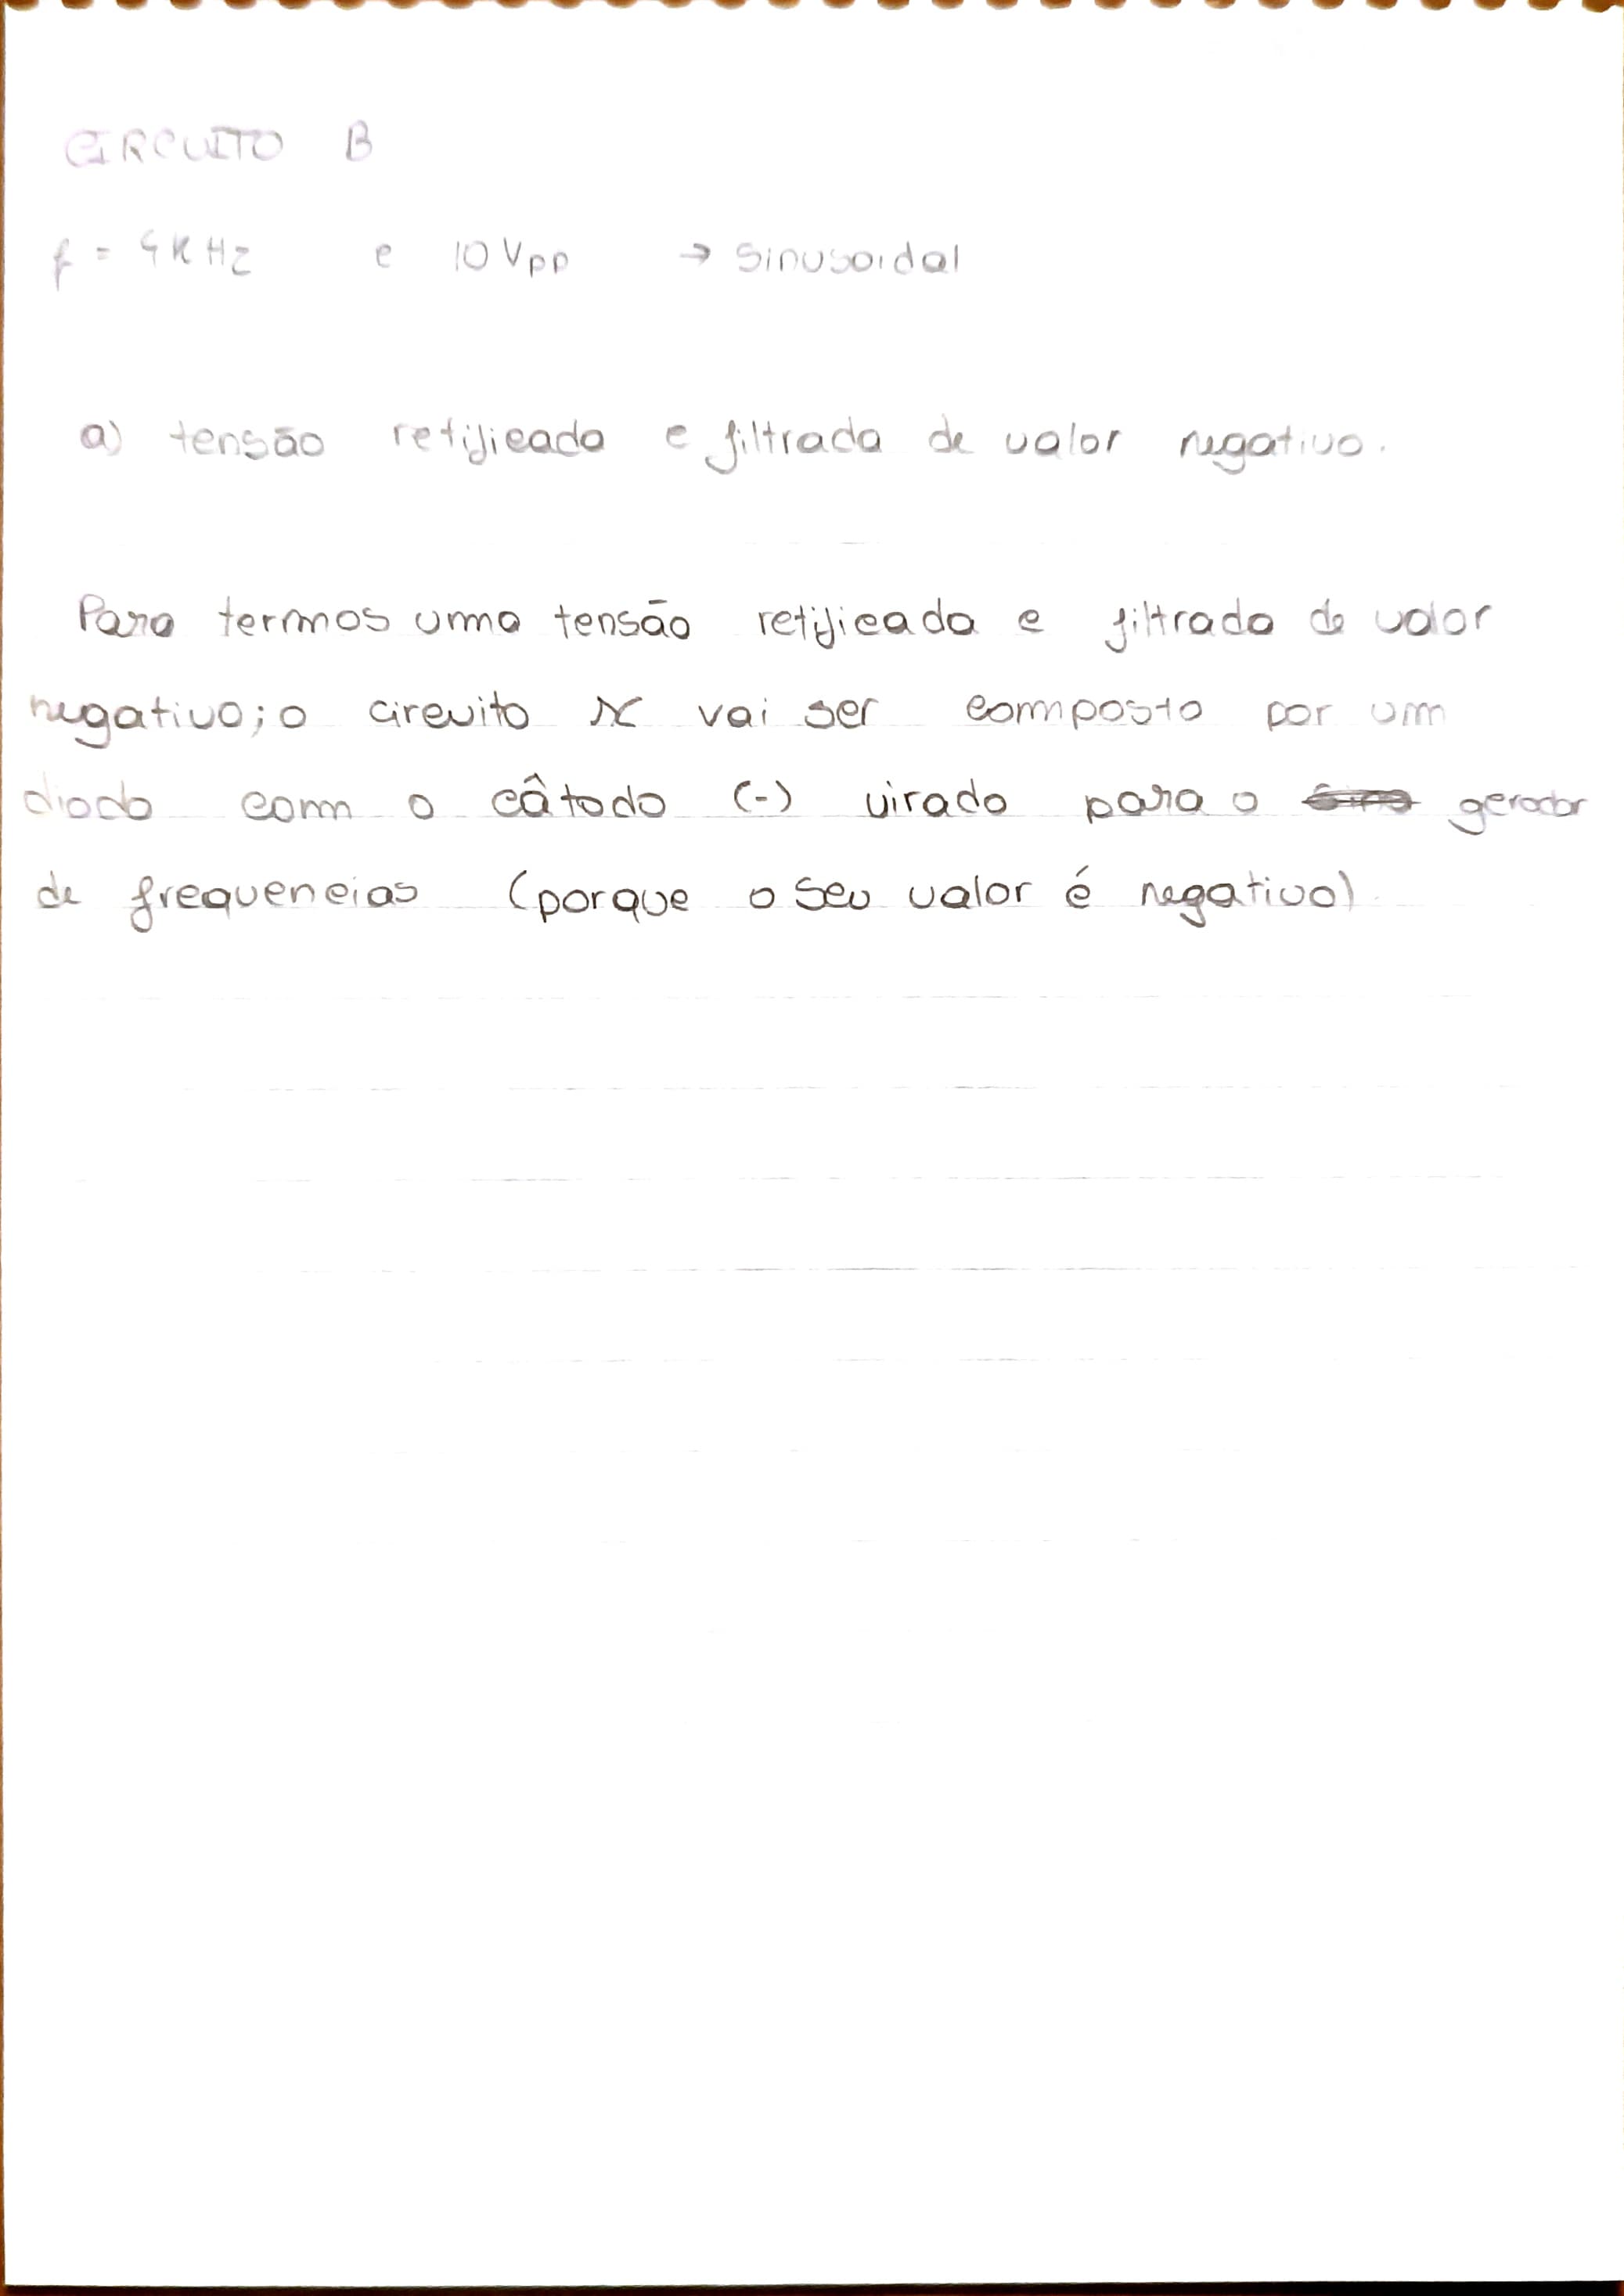 CIRCUITO B
f = 4KHz e 10Vpp → Sinusoidal
a) tensão retificada e filtrada de valor negativo.
Para termos uma tensão retificada e filtrada de valor
negativo; o circuito X vai ser composto por um
díodo com o câtodo (-) virado para o gerador
de frequencias (porque o seu valor é negativo)